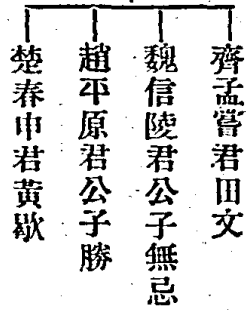 齊孟嘗君田文
魏信陵君公子無忌
趙平原君公子勝
楚春申君黃歇